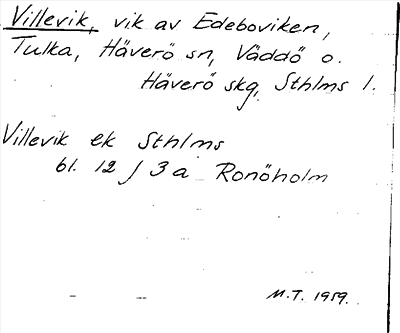 Villevik, vik av Edeboviken,
Tulka, Häverö sn, Väddö o.
Häverö skg, Sthlms l.
Villevik ek Sthlms
bl. 12 J 3 a Ronöholm
M.T. 1959.